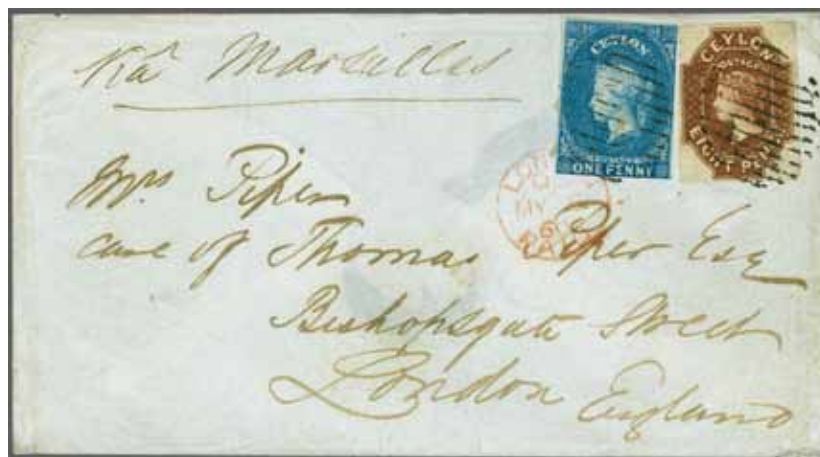 Via Marseilles
CEYLON
POSTAGE
ONE PENNY
CEYLON
POSTAGE
EIGHT PENCE
Mrs Piper
care of Thomas Piper Esq
Bishopsgate Street
London England